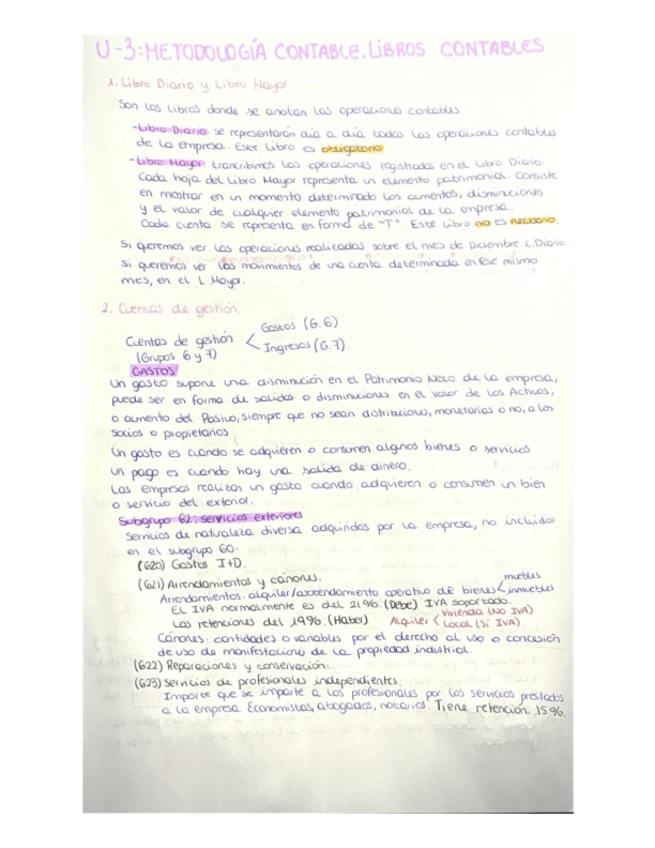 U-3: METODOLOGÍA CONTABLE. LIBROS CONTABLES
1. Libro Diario y Libro Mayor.
Son los libros donde se anotan las operaciones contables.
-Libro Diario se representarán día a día todas las operaciones contables
de la empresa. Este Libro es obligatorio
-Libro Mayor trancribimos las operaciones registradas en el Libro Diario.
Cada hoja del Libro Mayor representa un elemento patrimonial. Consiste
en mostrar en un momento determinado los aumentos, disminuciones
y el valor de cualquier elemento patrimonial de la empresa.
Cada cuenta se representa en forma de "T". Este Libro no es necesario.
Si queremos ver las operaciones realizadas sobre el mes de Diciembre. L. Diario.
Si queremos ver los movimientos de una cuenta determinada en ese mismo
mes, en el L. Mayor.
2. Cuentas de gestión.
Gastos (G.6)
Cuentas de gestión
Ingresos (G.7).
(Grupos 6 y 7)
GASTOS
Un gasto supone una disminución en el Patrimonio Neto de la empresa,
puede ser en forma de salidas o disminuciones en el valor de los Activos,
o aumento del Pasivo, siempre que no sean distribuciones, monetarias o no, a los
socios o propietarios
Un gasto es cuando se adquieren o consumen algunos bienes o servicios
Un pago es cuando hay una salida de dinero.
Las empresas realizan un gasto cuando adquieren o consumen un bien
o servicio del exterior.
Subgrupo 62: servicios exteriores
Servicios de naturaleza diversa adquiridos por la empresa, no incluidos
en el subgrupo 60.
(620) Gastos I+D.
(621) Arrendamientos y cánones.
muebles
Arrendamientos: alquiler/arrendamiento operativo de bienes inmuebles
EL IVA normalmente es del 21%. (Debe) IVA soportado.
Las retenciones del 19%. (Haber) Alquiler vivienda (No IVA)
Local (Sí IVA).
Cánones: cantidades o variables por el derecho al uso o concesión
de uso de manifestaciones de la propiedad industrial.
(622) Reparaciones y conservación.
(623) Servicios de profesionales independientes.
Importe que se imparte a los profesionales por los servicios prestados
a la empresa. Economistas, abogados, notarios. Tiene retención. 15%.